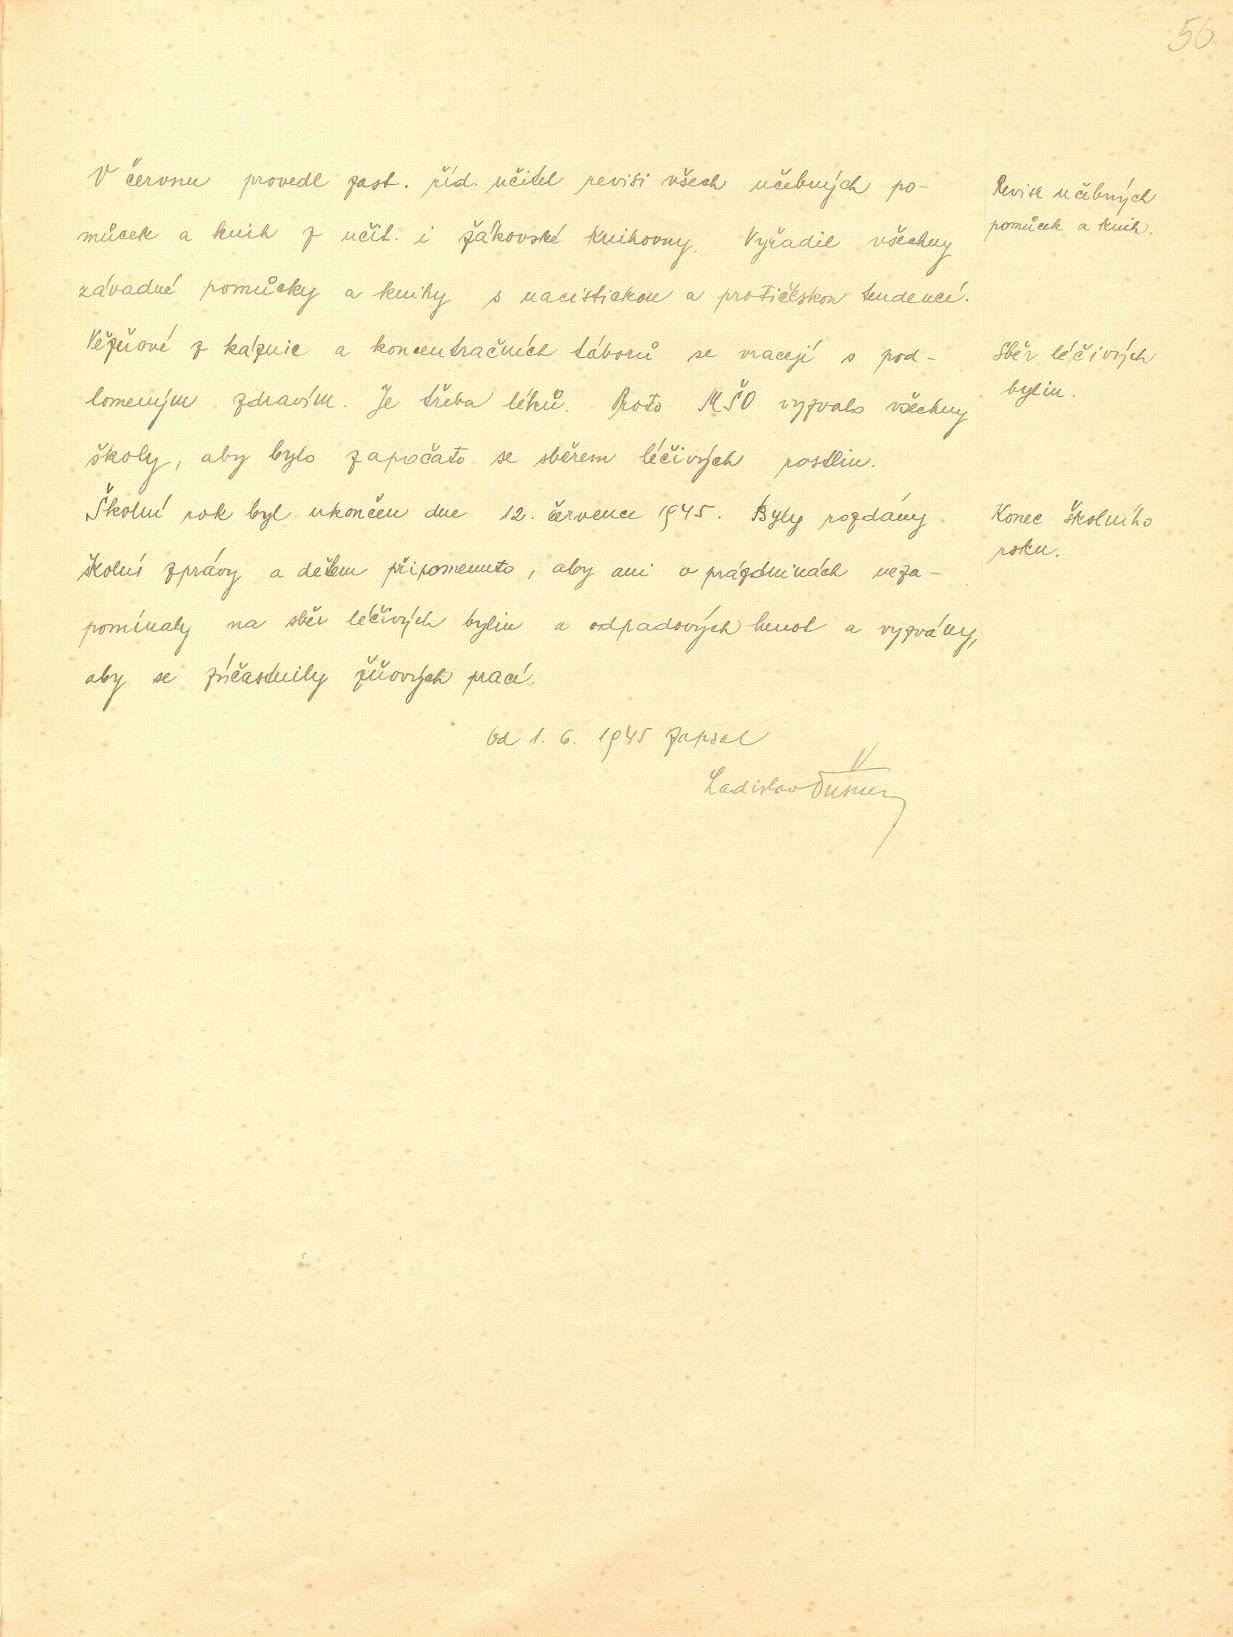 56
V červnu provedl zast. říd. učitel revisi všech učebných po-
můcek a knih z učit. i žákovské knihovny. Vyřadil všechny
závadné pomůcky a knihy s nacistickou a protičeskou tendencí.
Revise učebných
pomůcek a knih.
Vězňové z káznic a koncentračních táborů se vracejí s pod-
lomeným zdravím. Je třeba léků. Proto MŠO vyzvalo všechny
školy, aby bylo započato se sběrem léčivých rostlin.
Sběr léčivých
bylin.
Školní rok byl ukončen dne 12. července 1945. Byly rozdány
školní zprávy a dětem připomenuto, aby ani o prázdninách neza-
pomínaly na sběr léčivých bylin a odpadových hmot a vyzvány,
aby se zúčastnily žňových prací.
Konec školního
roku.
Od 1. 6. 1945 zapsal
Ladislav